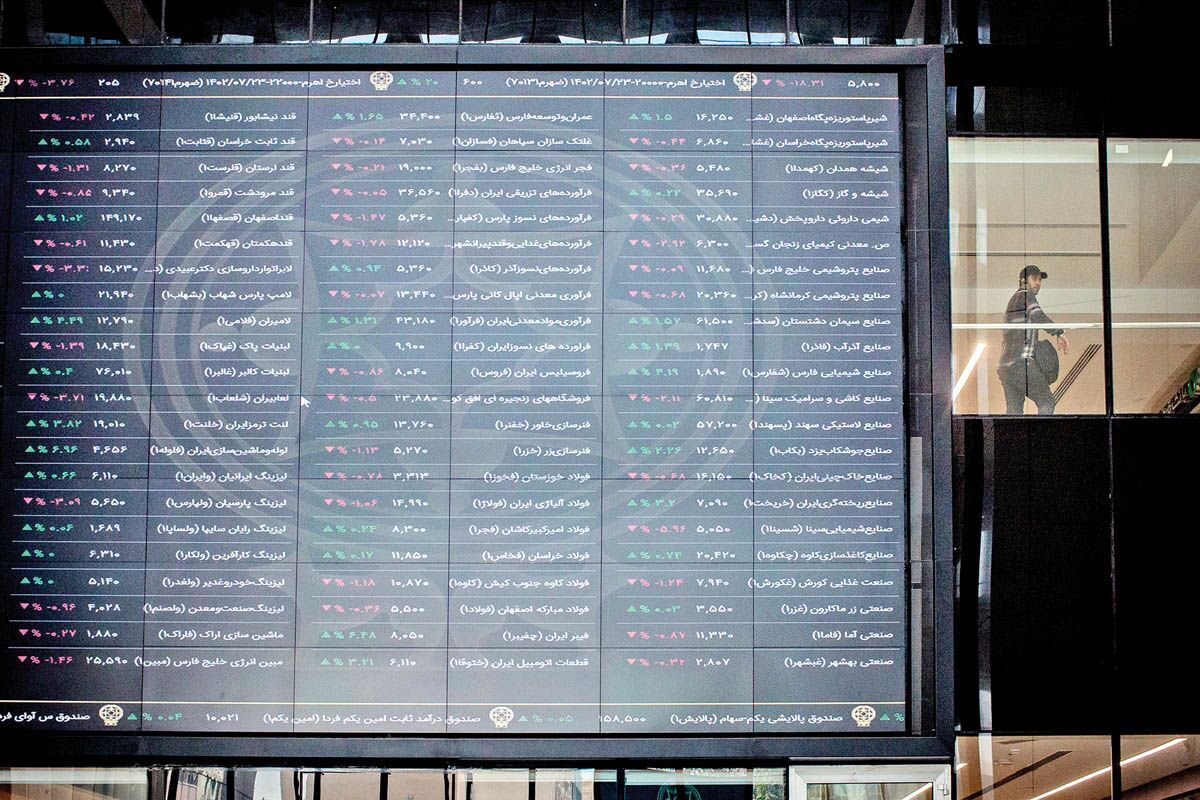 ۵,۸۰۰ ▼ % -۱۸.۳۱ اختیارخ اهرم-۲۰۰۰۰-۱۴۰۲/۰۷/۲۳ (ضهرم۷۰۱۳) ۶۰۰ ▲ % ۲۰ اختیارخ اهرم-۲۲۰۰۰-۱۴۰۲/۰۷/۲۳ ۲۰۵ ▼ % -۳.۷۶
شیرپاستوریزه‌پگاه‌اصفهان (غش... ۱۶,۲۵۰ ▲ % ۱.۵ عمران‌وتوسعه‌فارس (ثفارس۱) ۳۴,۴۰۰ ▲ % ۱.۶۵ قند نیشابور (قنیشا۱) ۲,۸۳۹ ▼ % -۰.۴۲
شیرپاستوریزه‌پگاه‌خراسان (غشا... ۶,۸۶۰ ▼ % -۰.۴۴ غلتک سازان سپاهان (فسازان۱) ۷,۰۳۰ ▼ % -۰.۱۴ قند ثابت خراسان (قثابت۱) ۲,۹۴۰ ▲ % ۰.۵۸
شیشه همدان (کهمدا۱) ۵,۴۸۰ ▼ % -۰.۳۶ فجر انرژی خلیج فارس (بفجر۱) ۱۹,۰۰۰ ▼ % -۰.۲۱ قند لرستان (قلرست۱) ۸,۲۷۰ ▼ % -۱.۳۱
شیشه و گاز (کگاز۱) ۳۵,۶۹۰ ▲ % ۰.۲۲ فرآورده‌های تزریقی ایران (دفرا۱) ۳۶,۵۶۰ ▼ % -۰.۰۵ قند مرودشت (قمرو۱) ۹,۳۴۰ ▼ % -۰.۸۵
شیمی داروئی داروپخش (دشی... ۳۰,۸۸۰ ▼ % -۰.۲۹ فرآورده‌های نسوز پارس (کفپار... ۵,۳۶۰ ▼ % -۱.۴۷ قنداصفهان (قصفها۱) ۱۴۹,۱۷۰ ▲ % ۱.۰۲
ص. معدنی کیمیای زنجان گس... ۶,۳۰۰ ▼ % -۲.۹۲ فرآورده‌های‌غذایی‌وقندپیرانشهر... ۱۲,۱۲۰ ▼ % -۱.۷۸ قندهکمتان (قهکمت۱) ۱۱,۴۳۰ ▼ % -۰.۶۱
صنایع پتروشیمی خلیج فارس (... ۱۱,۶۸۰ ▼ % -۰.۰۹ فرآورده‌های‌نسوزآذر (کاذر۱) ۵,۳۶۰ ▲ % ۰.۹۴ لابراتوارداروسازی دکترعبیدی (د... ۱۵,۲۳۰ ▼
صنایع پتروشیمی کرمانشاه (کر... ۲۰,۳۶۰ ▼ % -۰.۶۸ فرآوری معدنی اپال کانی پارس... ۱۳,۴۴۰ ▼ % -۰.۰۷ لامپ پارس شهاب (بشهاب۱) ۲۱,۹۴۰ ▲ % ۰
صنایع سیمان دشتستان (سدش... ۶۱,۵۰۰ ▲ % ۱.۵۷ فرآوری‌موادمعدنی‌ایران (فرآور۱) ۴۳,۱۸۰ ▲ % ۱.۳۱ لامیران (فلامی۱) ۱۲,۷۹۰ ▲ % ۴.۴۹
صنایع آذرآب (فاذر۱) ۱,۷۴۷ ▲ % ۱.۳۹ فرآورده های نسوزایران (کفرا۱) ۹,۹۰۰ ▲ % ۰ لبنیات پاک (غپاک۱) ۱۸,۴۳۰ ▼ % -۱.۳۹
صنایع شیمیایی فارس (شفارس۱) ۱,۸۹۰ ▲ % ۴.۱۹ فروسیلیس ایران (فروس۱) ۸,۰۴۰ ▼ % -۰.۸۶ لبنیات کالبر (غالبر۱) ۷۶,۰۱۰ ▲ % ۰.۴
صنایع کاشی و سرامیک سینا (... ۶۰,۸۱۰ ▼ % -۲.۱۱ فروشگاههای زنجیره ای افق کو... ۲۳,۸۸۰ ▼ % -۰.۵ لعابیران (شلعاب۱) ۱۹,۸۸۰ ▼ % -۳.۷۱
صنایع لاستیکی سهند (پسهند۱) ۵۷,۲۰۰ ▲ % ۰.۰۲ فنرسازی‌خاور (خفنر۱) ۱۳,۷۶۰ ▲ % ۰.۹۵ لنت ترمزایران (خلنت۱) ۱۹,۰۱۰ ▲ % ۳.۸۲
صنایع‌جوشکاب‌یزد (بکاب۱) ۱۲,۶۵۰ ▲ % ۲.۲۶ فنرسازی‌زر (خزر۱) ۵,۲۷۰ ▼ % -۱.۱۳ لوله‌وماشین‌سازی‌ایران (فلوله۱) ۴,۶۵۶ ▲ % ۶.۹۶
صنایع‌خاک‌چینی‌ایران (کخاک۱) ۱۶,۱۵۰ ▼ % -۰.۶۸ فولاد خوزستان (فخوز۱) ۳,۳۱۳ ▼ % -۰.۷۸ لیزینگ ایرانیان (وایران۱) ۶,۱۱۰ ▲ % ۰.۶۶
صنایع‌ریخته‌گری‌ایران (خریخت۱) ۷,۰۹۰ ▲ % ۳.۲ فولاد آلیاژی ایران (فولاژ۱) ۱۴,۹۹۰ ▼ % -۱.۰۶ لیزینگ پارسیان (ولپارس۱) ۵,۶۵۰ ▼ % -۳.۰۹
صنایع‌شیمیایی‌سینا (شسینا۱) ۵,۰۵۰ ▼ % -۵.۹۶ فولاد امیرکبیرکاشان (فجر۱) ۸,۳۰۰ ▲ % ۰.۲۴ لیزینگ رایان سایپا (ولساپا۱) ۱,۶۸۹ ▲ % ۰.۰۶
صنایع‌کاغذسازی‌کاوه (چکاوه۱) ۲۰,۴۲۰ ▲ % ۰.۷۴ فولاد خراسان (فخاس۱) ۱۱,۸۵۰ ▲ % ۰.۱۷ لیزینگ کارآفرین (ولکار۱) ۶,۳۱۰ ▲ % ۰
صنعت غذایی کورش (غکورش۱) ۷,۹۴۰ ▼ % -۱.۲۴ فولاد کاوه جنوب کیش (کاوه۱) ۱۰,۸۷۰ ▼ % -۱.۱۸ لیزینگ‌خودروغدیر (ولغدر۱) ۵,۱۴۰ ▲ % ۰
صنعتی زر ماکارون (غزر۱) ۳,۵۵۰ ▲ % ۰.۰۳ فولاد مبارکه اصفهان (فولاد۱) ۵,۵۰۰ ▼ % -۰.۳۶ لیزینگ‌صنعت‌ومعدن (ولصنم۱) ۴,۰۲۸ ▼ % -۰.۹۶
صنعتی آما (فاما۱) ۱۱,۳۳۰ ▼ % -۰.۸۷ فیبر ایران (چفیبر۱) ۸,۰۵۰ ▲ % ۶.۴۸ ماشین سازی اراک (فاراک۱) ۱,۸۸۰ ▼ % -۰.۲۷
صنعتی بهشهر (غبشهر۱) ۲,۸۰۷ ▼ % -۰.۳۲ قطعات اتومبیل ایران (ختوقا۱) ۶,۱۱۰ ▲ % ۳.۲۱ مبین انرژی خلیج فارس (مبین۱) ۲۵,۵۹۰ ▼ % -۱.۴۶
▲ % صندوق پالایشی یکم-سهام (پالایش۱) ۱۵۸,۵۰۰ ▲ % ۰.۰۵ صندوق درآمد ثابت امین یکم فردا (امین یکم۱) ۱۰,۰۲۱ ▲ % ۰.۰۴ صندوق س آوای فرد